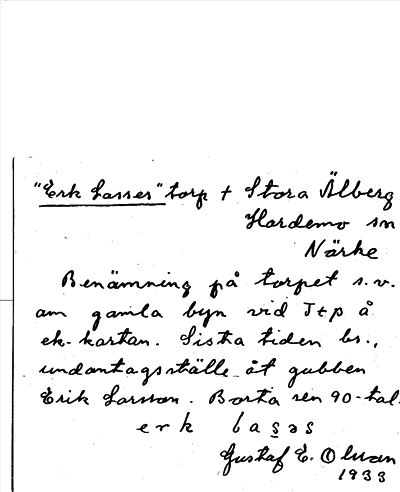 "Erk Lasses" torp + Stora Älberg
Hardemo sn
Närke
Benämning på torpet s.v.
om gamla byn vid T+p å
ek-kartan. Sista tiden bs.,
undantagsställe åt gubben
Erik Larsson. Borta sen 90-tal.
erk lasəs
Gustaf E. Olsson
1933